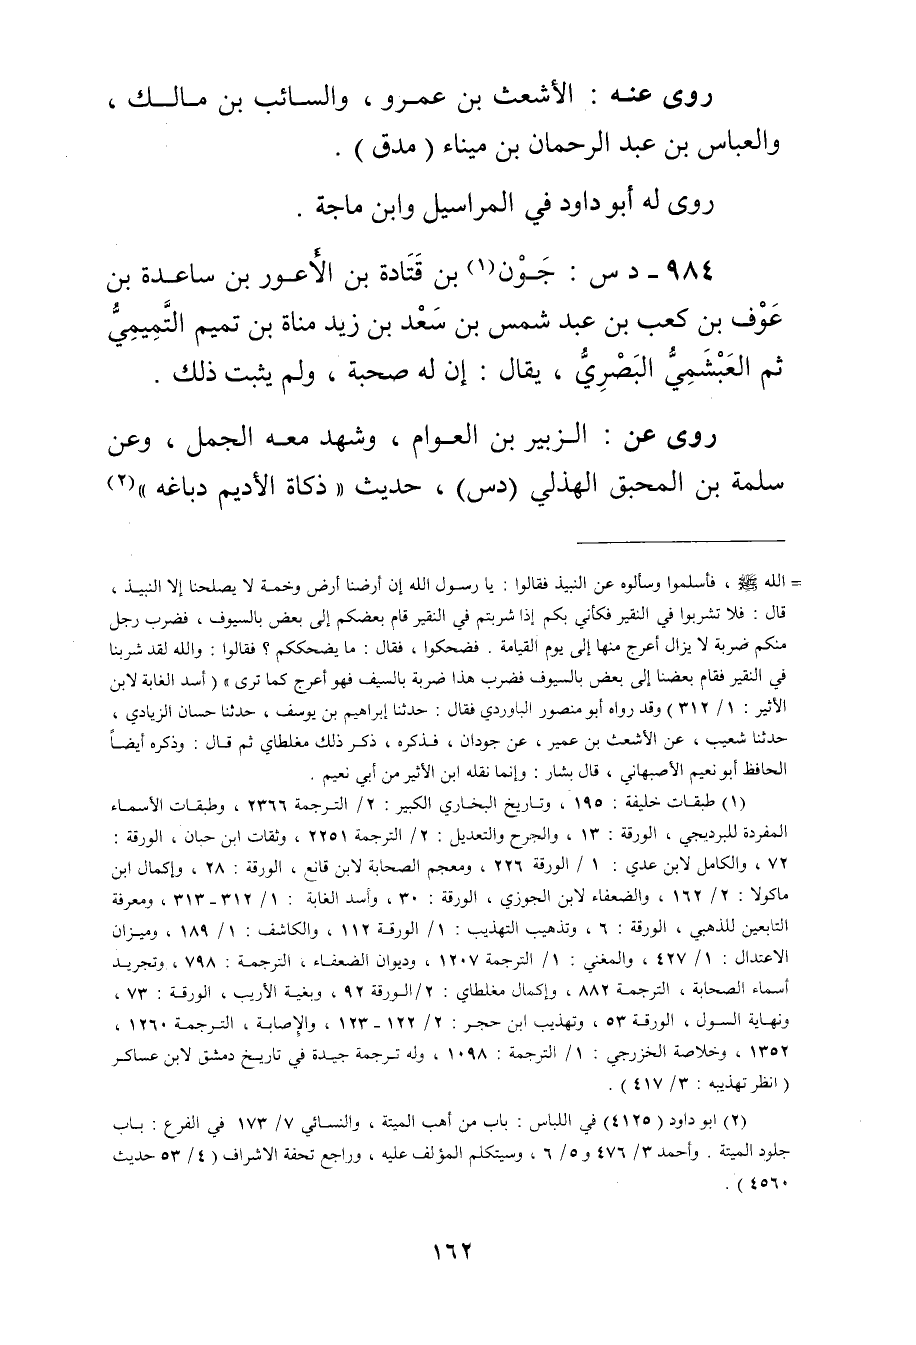 روى عنه : الأشعث بن عمرو ، والسائب بن مالك ،
والعباس بن عبد الرحمان بن ميناء ( مدق ) .
روى له أبو داود في المراسيل وابن ماجة .
٩٨٤ - د س : جَوْن(١) بن قَتَادة بن الأَعور بن ساعدة بن
عَوْف بن كعب بن عبد شمس بن سَعْد بن زيد مناة بن تميم التَّمِيميُّ
ثم العَبْشَمِيُّ البَصْرِيُّ ، يقال : إن له صحبة ، ولم يثبت ذلك .
روى عن : الزبير بن العوام ، وشهد معه الجمل ، وعن
سلمة بن المحبق الهذلي (دس) ، حديث « ذكاة الأديم دباغه »(٢)
= الله ﷺ ، فأسلموا وسألوه عن النبيذ فقالوا : يا رسول الله إن أرضنا أرض وخمة لا يصلحنا إلا النبيذ ،
قال : فلا تشربوا في النقير فكأني بكم إذا شربتم في النقير قام بعضكم إلى بعض بالسيوف ، فضرب رجل
منكم ضربة لا يزال أعرج منها إلى يوم القيامة . فضحكوا ، فقال : ما يضحككم ؟ فقالوا : والله لقد شربنا
في النقير فقام بعضنا إلى بعض بالسيوف فضرب هذا ضربة بالسيف فهو أعرج كما ترى » ( أسد الغابة لابن
الأثير : ١/ ٣١٢ ) وقد رواه أبو منصور الباوردي فقال : حدثنا إبراهيم بن يوسف ، حدثنا حسان الزيادي ،
حدثنا شعيب ، عن الأشعث بن عمير ، عن جودان ، فذكره ، ذكر ذلك مغلطاي ثم قال : وذكره أيضاً
الحافظ أبو نعيم الأصبهاني ، قال بشار : وإنما نقله ابن الأثير من أبي نعيم .
(١) طبقات خليفة : ١٩٥ ، وتاريخ البخاري الكبير : ٢/ الترجمة ٢٣٦٦ ، وطبقات الأسماء
المفردة للبرديجي ، الورقة : ١٣ ، والجرح والتعديل : ٢/ الترجمة ٢٢٥١ ، وثقات ابن حبان ، الورقة :
٧٢ ، والكامل لابن عدي : ١ / الورقة ٢٢٦ ، ومعجم الصحابة لابن قانع ، الورقة : ٢٨ ، وإكمال ابن
ماكولا : ٢/ ١٦٢ ، والضعفاء لابن الجوزي ، الورقة : ٣٠ ، وأسد الغابة : ١/ ٣١٢ - ٣١٣ ، ومعرفة
التابعين للذهبي ، الورقة : ٦ ، وتذهيب التهذيب : ١/ الورقة ١١٢ ، والكاشف : ١/ ١٨٩ ، وميزان
الاعتدال : ١/ ٤٢٧ ، والمغني : ١/ الترجمة ١٢٠٧ ، وديوان الضعفاء ، الترجمة : ٧٩٨ ، وتجريد
أسماء الصحابة ، الترجمة ٨٨٢ ، وإكمال مغلطاي : ٢/الورقة ٩٢ ، وبغية الأريب ، الورقة : ٧٣ ،
ونهاية السول ، الورقة ٥٣ ، وتهذيب ابن حجر : ٢/ ١٢٢ - ١٢٣ ، والإصابة ، الترجمة ١٢٦٠ ،
١٣٥٢ ، وخلاصة الخزرجي : ١/ الترجمة : ١٠٩٨ ، وله ترجمة جيدة في تاريخ دمشق لابن عساكر
( انظر تهذيبه : ٣/ ٤١٧ ) .
(٢) ابو داود ( ٤١٢٥) في اللباس : باب من أهب الميتة ، والنسائي ٧/ ١٧٣ في الفرع : باب
جلود الميتة . وأحمد ٣/ ٤٧٦ و ٥/ ٦ ، وسيتكلم المؤلف عليه ، وراجع تحفة الاشراف ( ٤/ ٥٣ حديث
٤٥٦٠ ) .
١٦٢